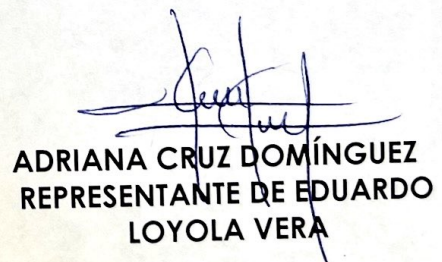 ADRIANA CRUZ DOMÍNGUEZ
REPRESENTANTE DE EDUARDO
LOYOLA VERA